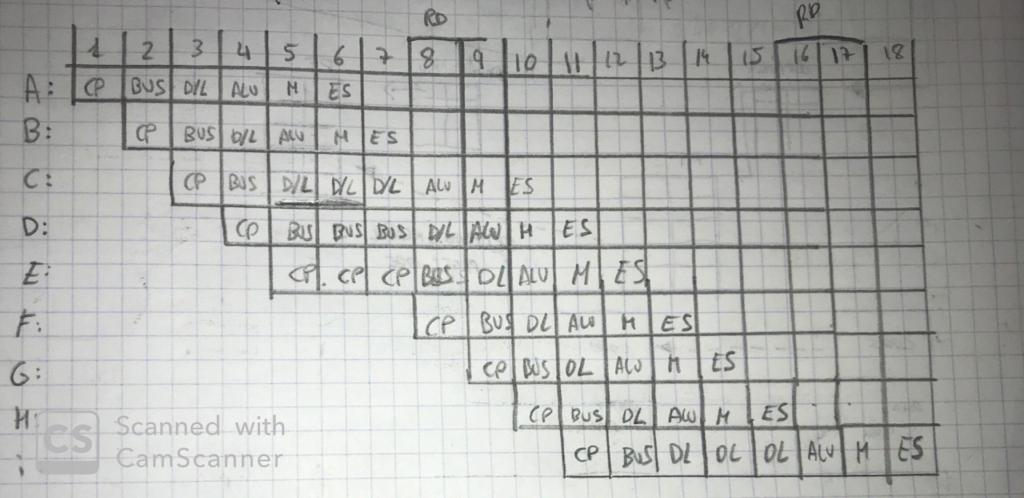 RD RD
1 2 3 4 5 6 7 8 9 10 11 12 13 14 15 16 17 18
A: CP BUS D/L ALU M ES
B: CP BUS D/L ALU M ES
C: CP BUS D/L D/L D/L ALU M ES
D: CP BUS BUS BUS D/L ALU M ES
E: CP CP CP BUS DL ALU M ES
F: CP BUS DL ALU M ES
G: CP BUS DL ALU M ES
H: CP BUS DL ALU M ES
i CP BUS DL DL DL ALU M ES
CS Scanned with
CamScanner